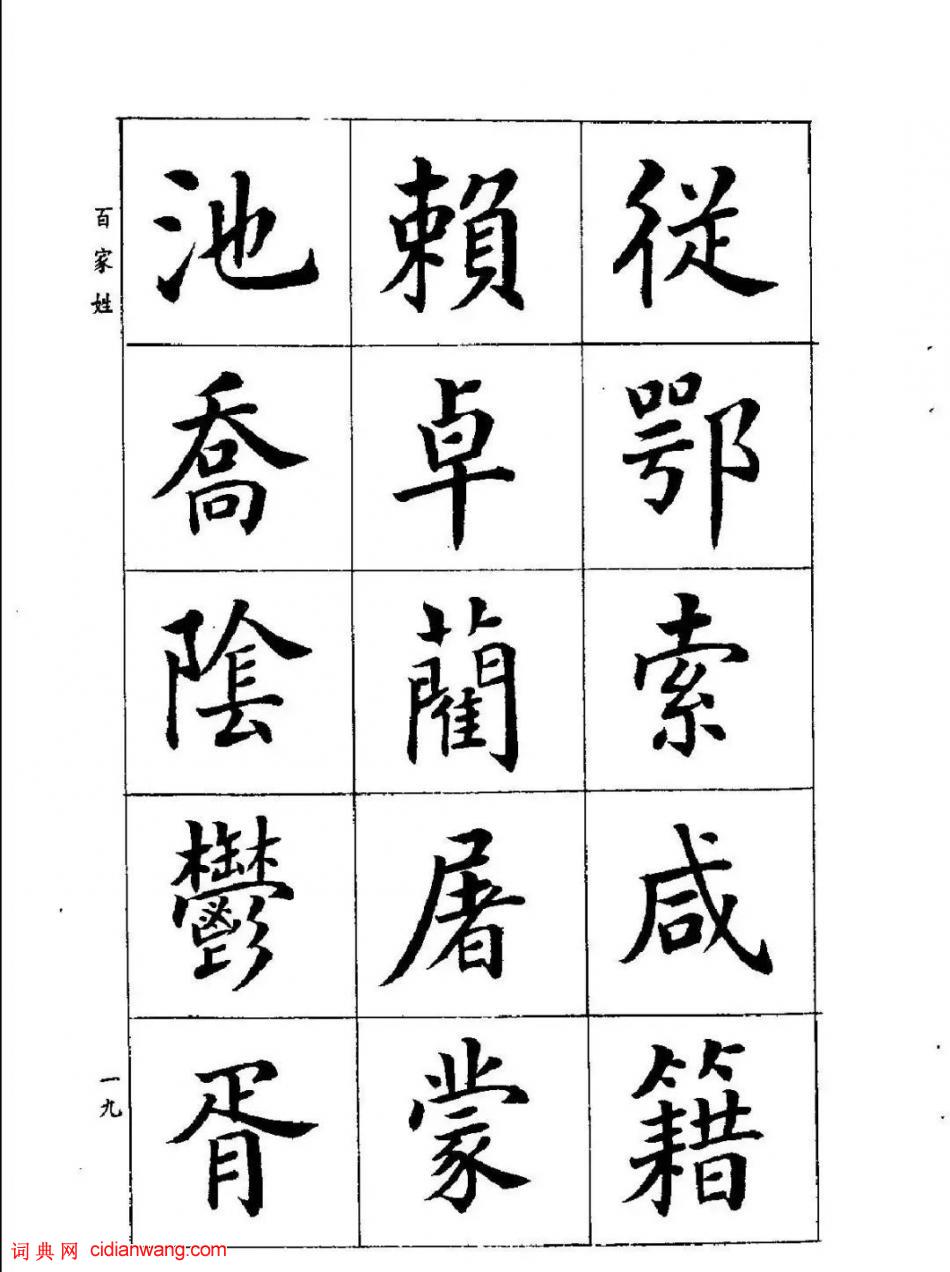 從鄂索咸籍
賴卓藺屠蒙
池喬陰鬱胥
百家姓
一九
词典网 cidianwang.com